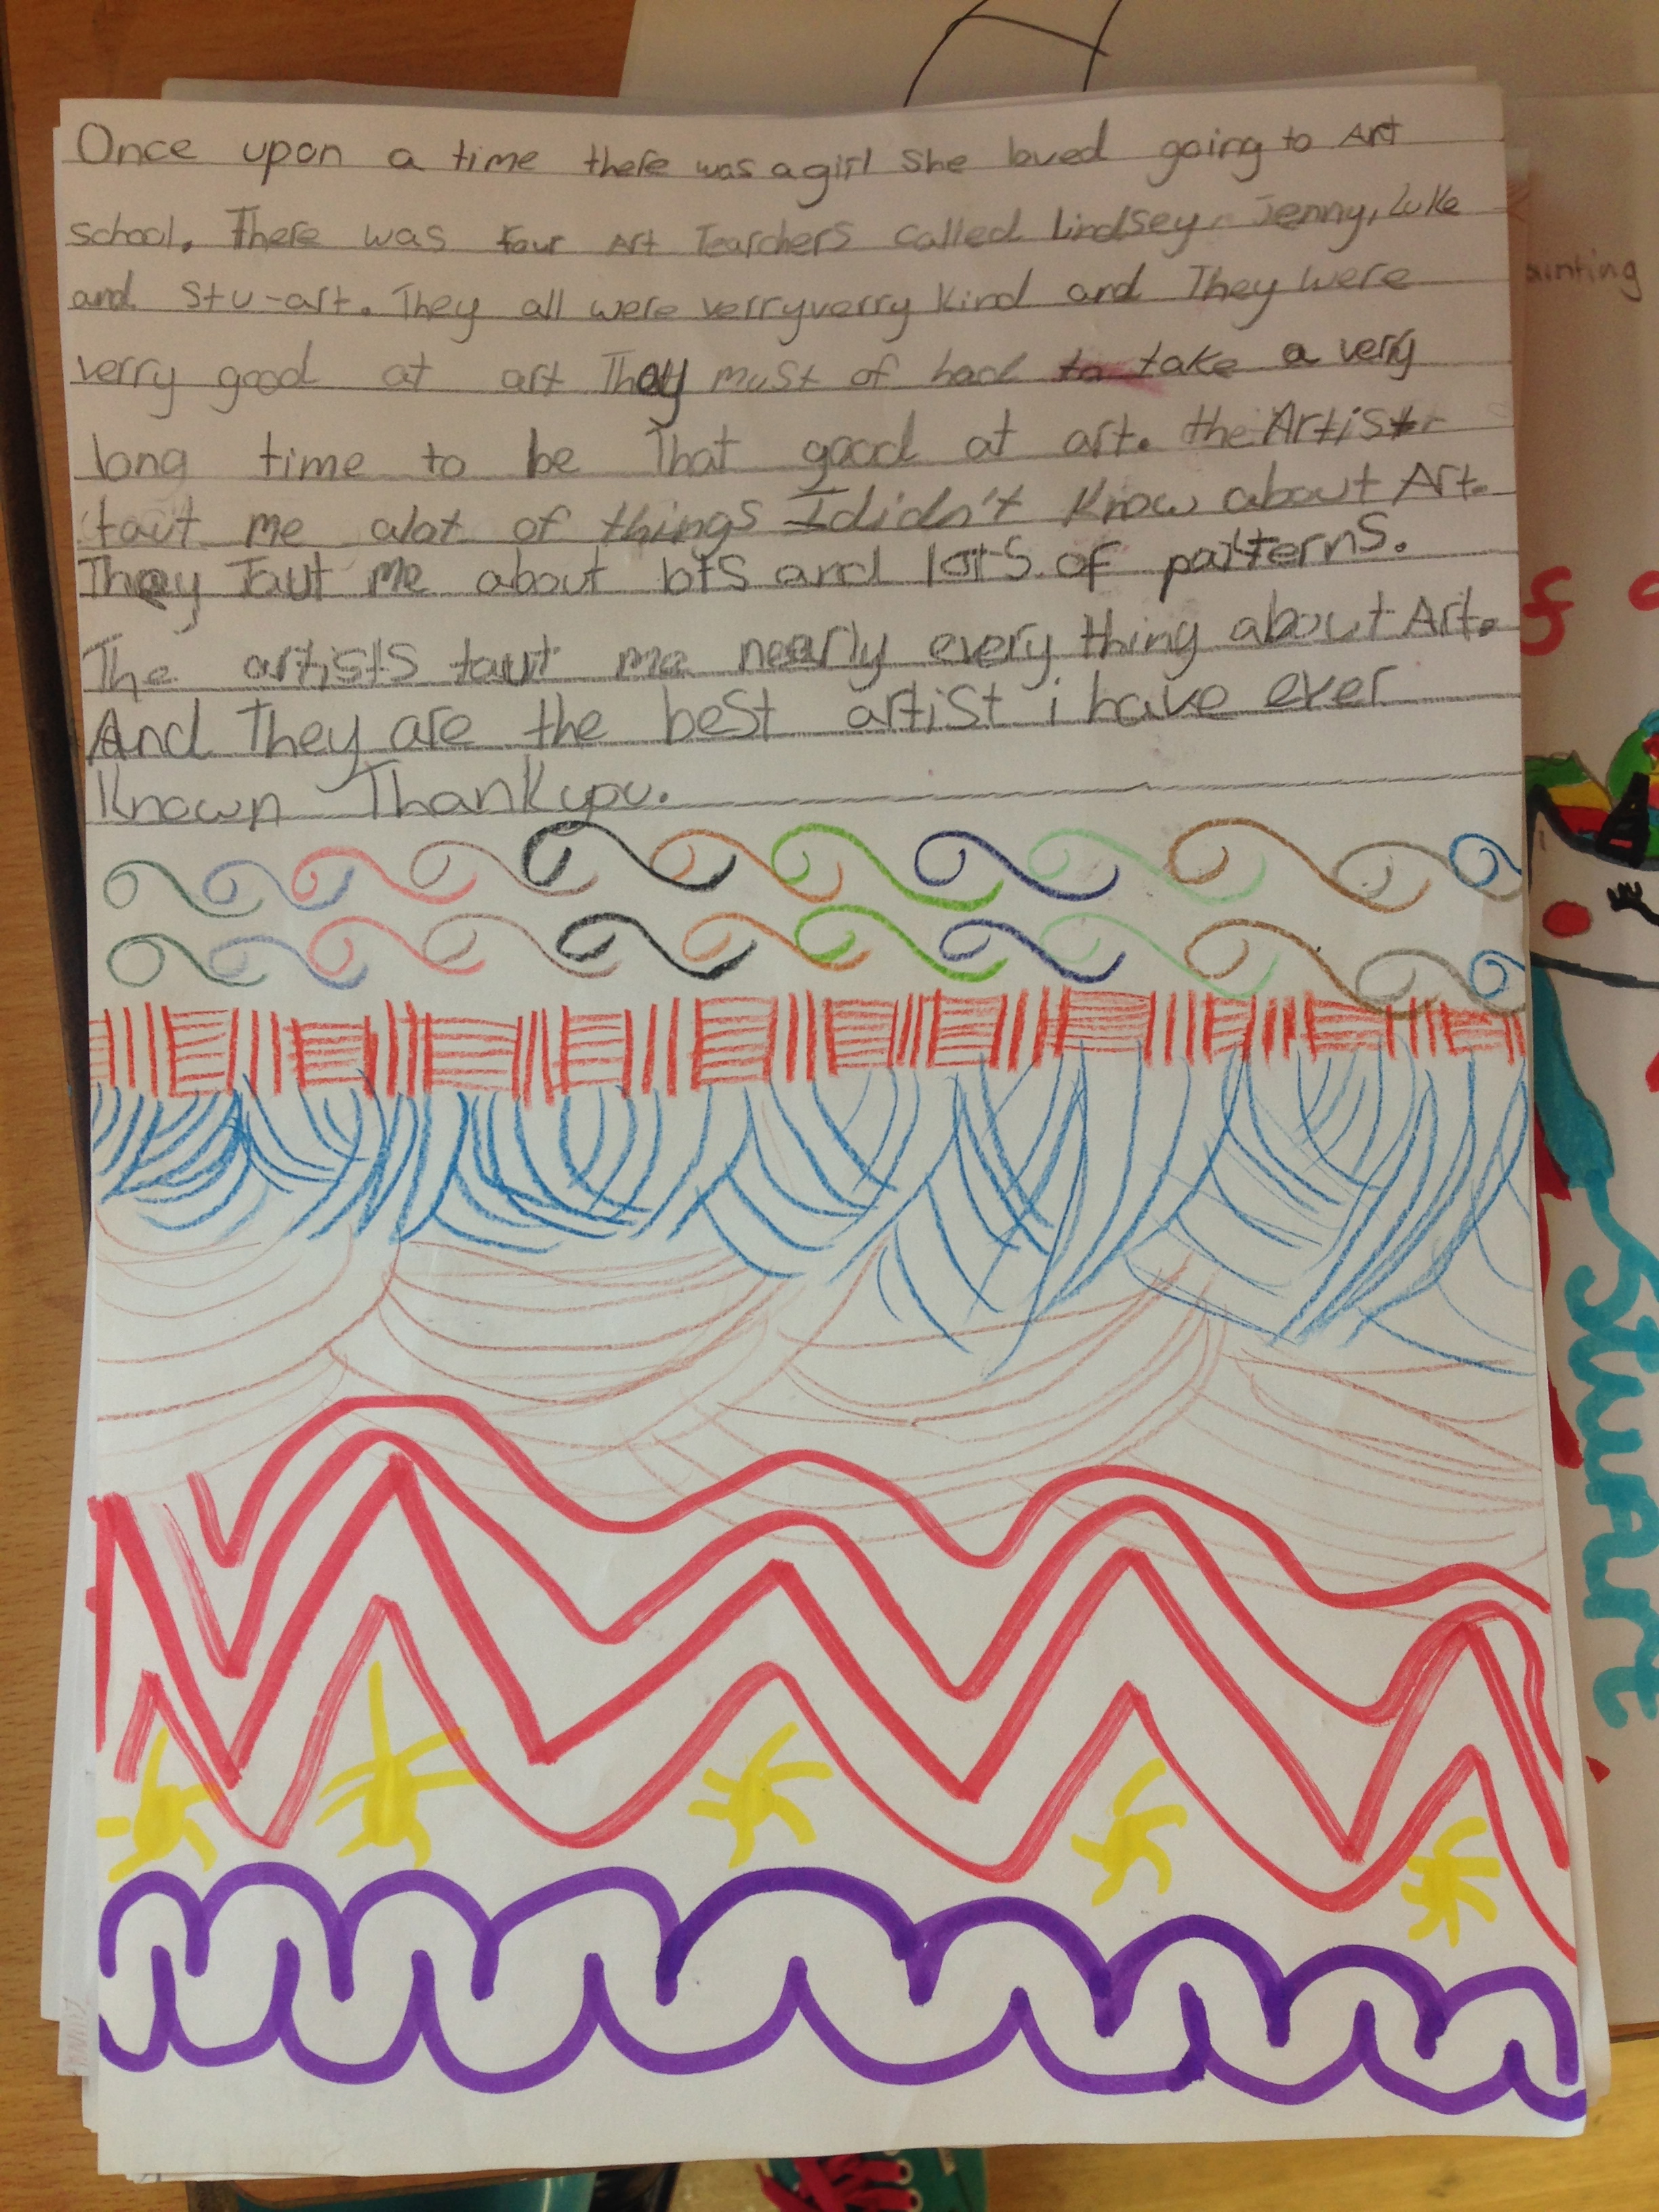 Once upon a time there was a girl She loved going to Art
school. There was four Art Tearchers called Lindsey, Jenny, Luke
and Stu-art. They all were verryverry kind and They were
verry good at art They must of had to take a very
long time to be That good at art. the Artist
taut me alot of things I didn't know about Art.
They Taut me about bts and lots of patterns.
The artists taut me nearly every thing about Art.
And They are the best artist i have ever
Known Thankyou.
ainting
Stuart